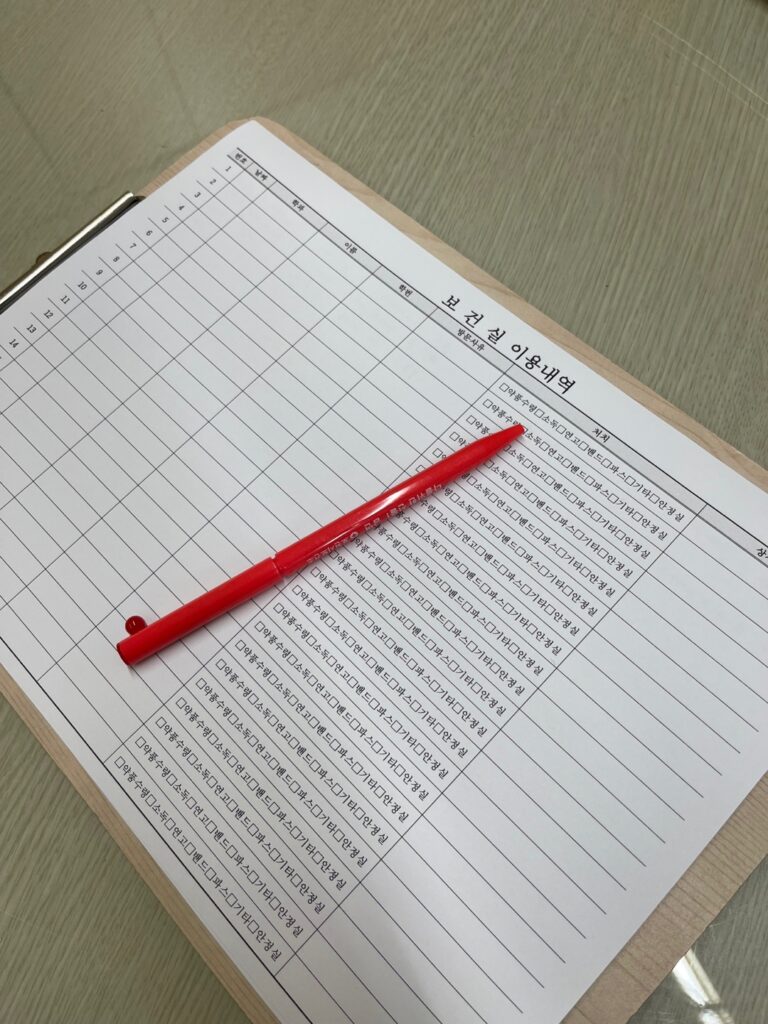 보 건 실 이용내역
번호 날짜 학과 이름 학번 방문사유 처치
1 □약품수령□소독□연고□밴드□파스□기타□안정실
2 □약품수령□소독□연고□밴드□파스□기타□안정실
3 □약품수령□소독□연고□밴드□파스□기타□안정실
4 □약품수령□소독□연고□밴드□파스□기타□안정실
5 □약품수령□소독□연고□밴드□파스□기타□안정실
6 □약품수령□소독□연고□밴드□파스□기타□안정실
7 □약품수령□소독□연고□밴드□파스□기타□안정실
8 □약품수령□소독□연고□밴드□파스□기타□안정실
9 □약품수령□소독□연고□밴드□파스□기타□안정실
10 □약품수령□소독□연고□밴드□파스□기타□안정실
11 □약품수령□소독□연고□밴드□파스□기타□안정실
12 □약품수령□소독□연고□밴드□파스□기타□안정실
13 □약품수령□소독□연고□밴드□파스□기타□안정실
14 □약품수령□소독□연고□밴드□파스□기타□안정실
□약품수령□소독□연고□밴드□파스□기타□안정실
□약품수령□소독□연고□밴드□파스□기타□안정실
□약품수령□소독□연고□밴드□파스□기타□안정실
□약품수령□소독□연고□밴드□파스□기타□안정실
□약품수령□소독□연고□밴드□파스□기타□안정실
□약품수령□소독□연고□밴드□파스□기타□안정실